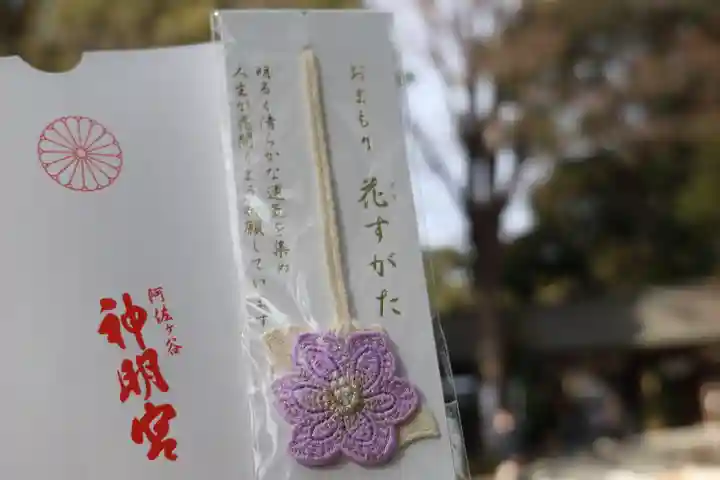 おまもり
花すがた
明るく清らかな運気を集め
人生が花開くようお願しています
阿佐ヶ谷
神明宮